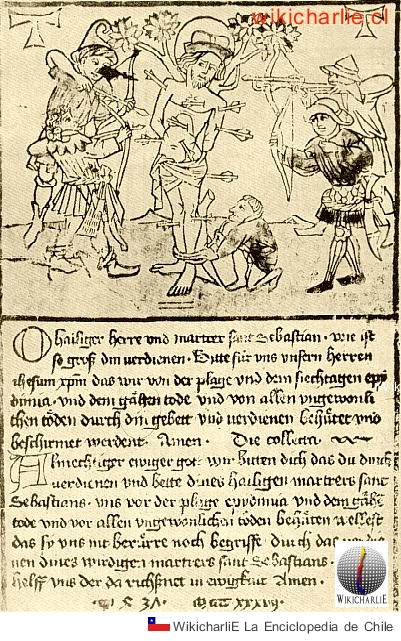 wikicharlie.cl
O hailiger herre und martrer sant Sebastian · wie ist
so groß din verdienen · Bitte für uns unsern herren
ihesum xpm das wir von der plage und dem siechtagen epy
dimia · und dem gähen tode und von allen ungewonli
chen töden durch din gebett und verdienen behütet und
beschirmet werdent · Amen · Die collecta
Almechtiger ewiger got · wir bitten dich das du durch
verdienen und bette dines hailigen martrers sant
Sebastians · uns vor der plage epydimia und dem gähen
tode und vor allen ungewonlichen töden behüten wellest
das sy uns nit berürre noch begriffe durch das verdie
nen dines wirdigen martrers sant Sebastians ·
helff uns der da richßnet in ewigkait Amen ·
WIKICHARLIE
WikicharliE La Enciclopedia de Chile